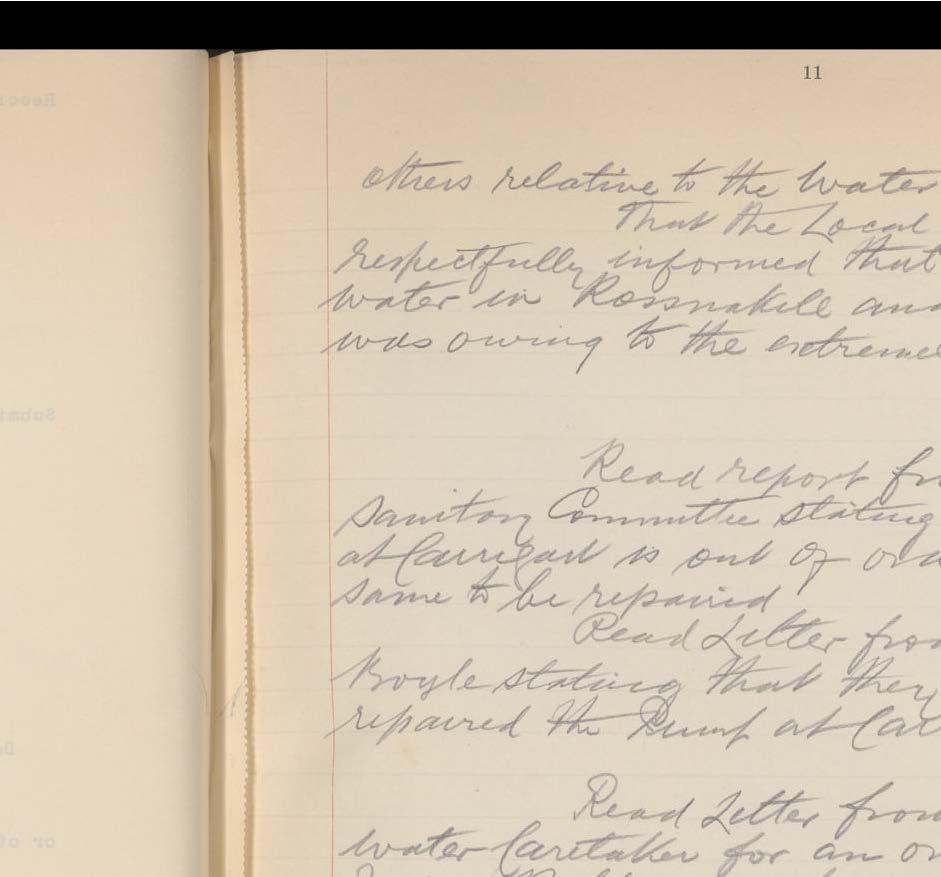 11
others relative to the Water
That the Local
respectfully informed that
water in Rossnakill and
was owing to the extreme
Read report fr
Sanitary Committee stating
at Carrigart is out of ord
same to be repaired
Read Letter from
Boyle stating that they
repaired the Pump at Car
Read Letter from
water Caretaker for an or